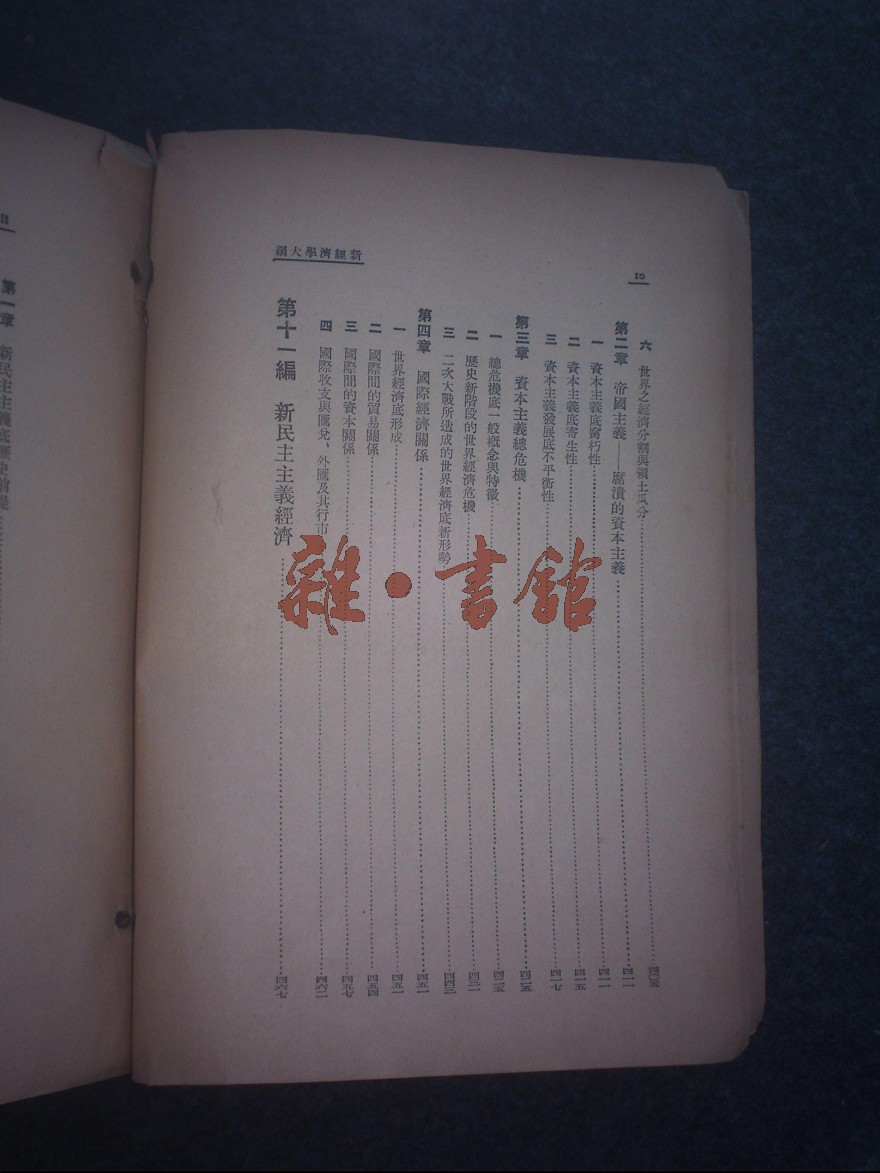 新經濟學大綱
10
六 世界之經濟分割與領土瓜分 四〇五
第二章 帝國主義——腐潰的資本主義 四一一
一 資本主義底腐朽性 四一一
二 資本主義底寄生性 四一五
三 資本主義發展底不平衡性 四一七
第三章 資本主義總危機 四二五
一 總危機底一般概念與特徵 四二五
二 歷史新階段的世界經濟危機 四三二
三 二次大戰所造成的世界經濟底新形勢 四四三
第四章 國際經濟關係 四五一
一 世界經濟底形成 四五一
二 國際間的貿易關係 四五四
三 國際間的資本關係 四五七
四 國際收支與匯兌、外匯及其行市 四六二
第十一編 新民主主義經濟 四六七
第一章 新民主主義底歷史前提
雜·書館